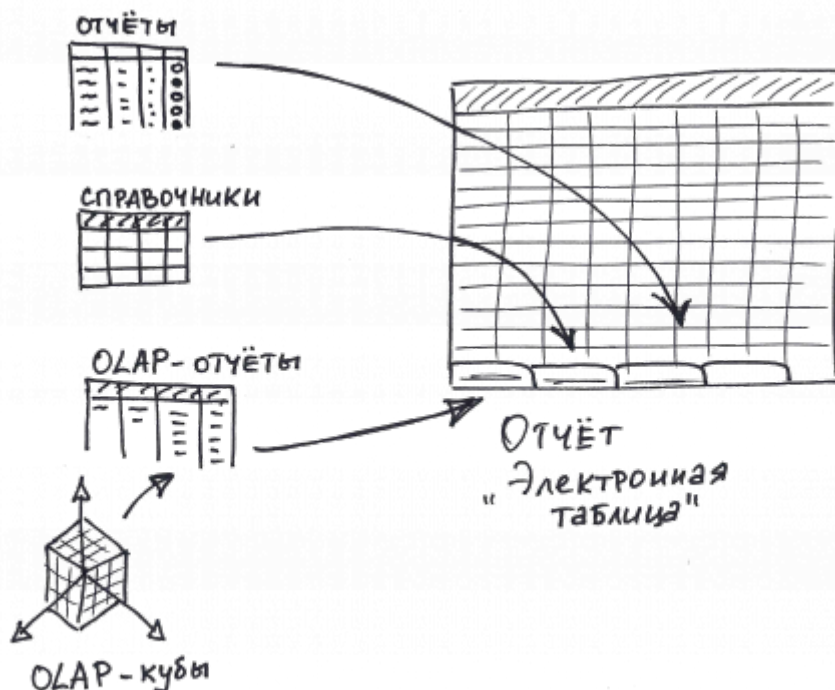 ОТЧЁТЫ
СПРАВОЧНИКИ
OLAP-ОТЧЁТЫ
OLAP-кубы
ОТЧЁТ
"Электронная
таблица"